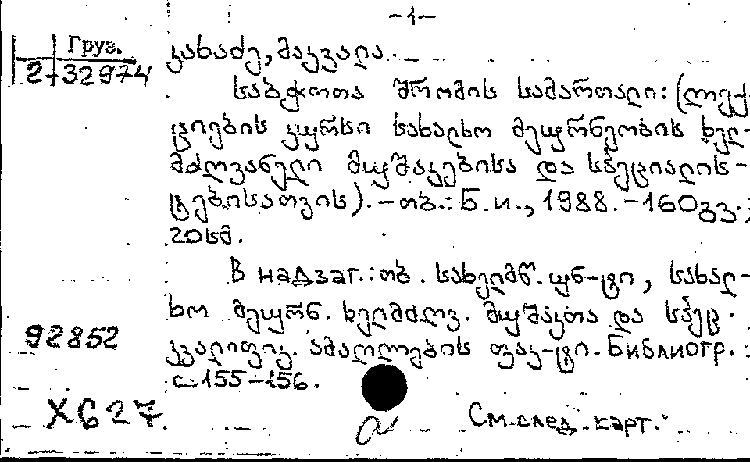 -1-
Груз.
2-32974
კახაძე, მაყვალა.
საბჭოთა შრომის სამართალი: (ლექ-
ციების კურსი სახალხო მეურნეობის ხელ-
მძღვანელი მუშაკებისა და სპეციალის-
ტებისათვის). - თბ.: Б.и., 1988. - 160 გვ.;
20 სმ.
В надзаг.: თბ. სახელმწ. უნ-ტი, სახალ-
ხო მეურნ. ხელმძღვ. მუშაკთა და სპეც.
კვალიფიკ. ამაღლების ფაკ-ტი. Библиогр.:
с. 155-156.
92852
Х627.
См. след. карт.